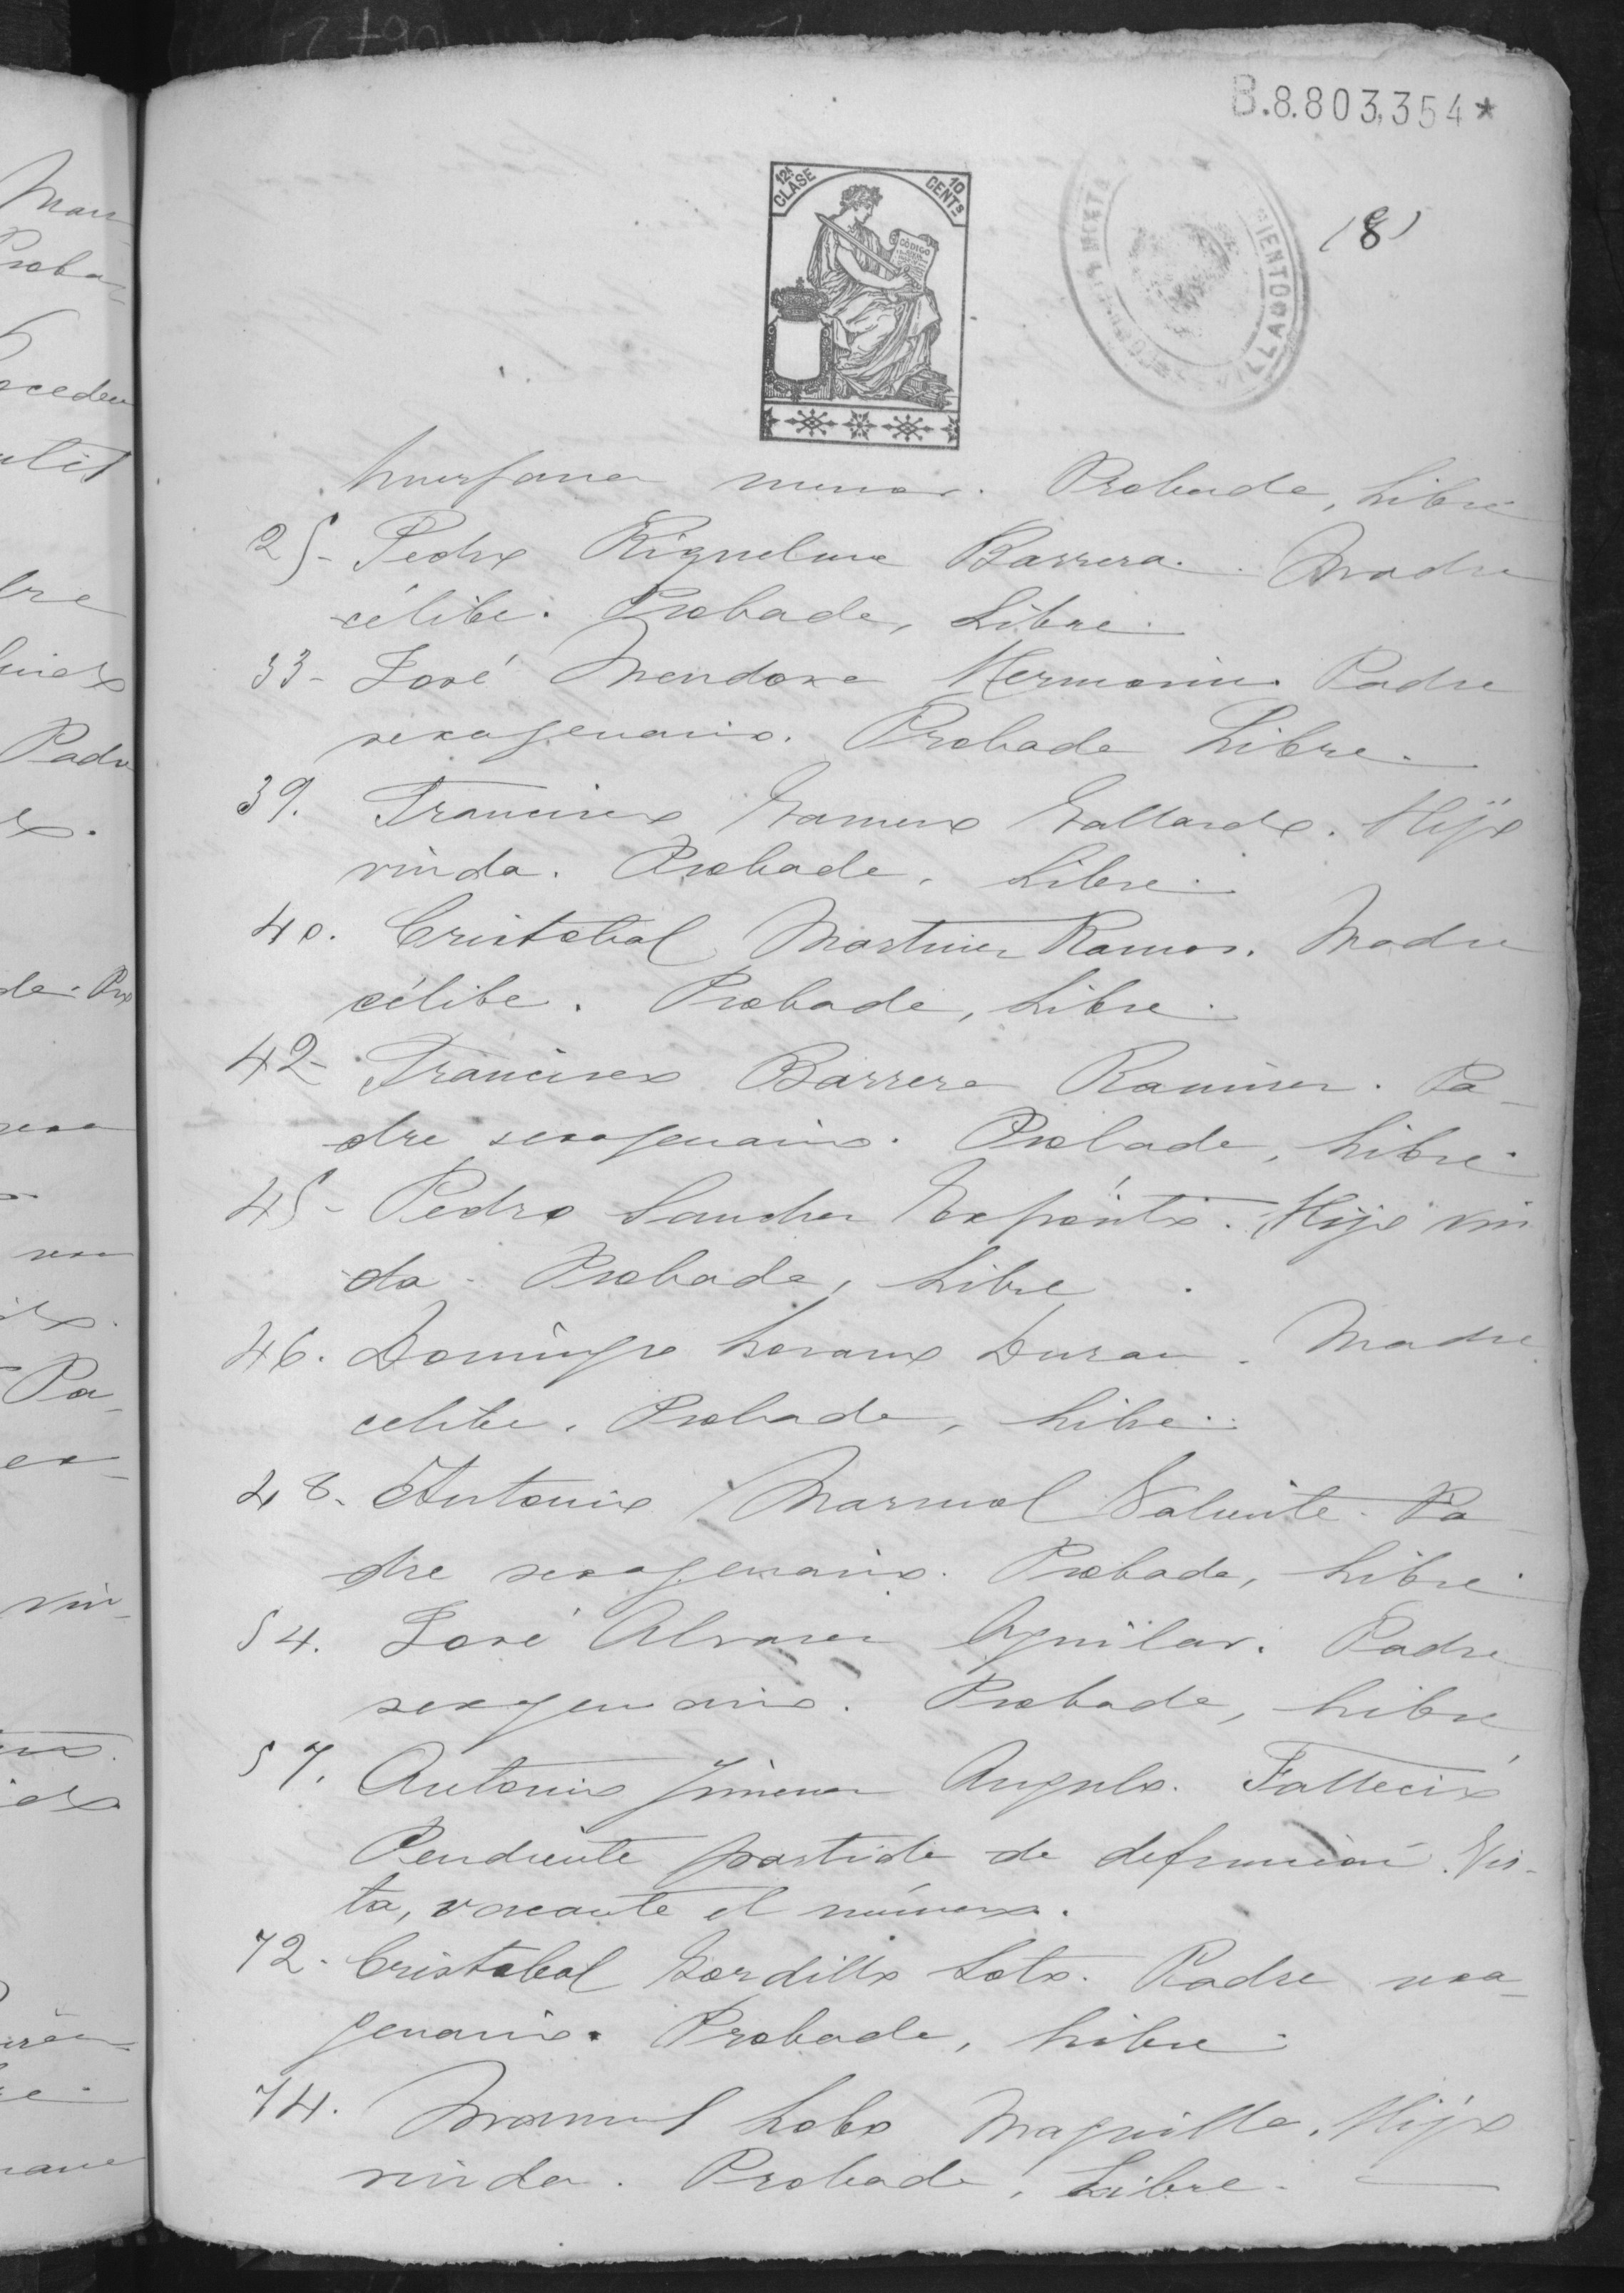 B.8.803,354*
12ª CLASE
10 CENTS
CODIGO
(8)
huerfano menor. Probada, Libre
25- Pedro Riquelme Barrera. Madre
célibe. Probada, Libre.
33- José Mendoza Padre
sexagenario. Probada Libre.
39. Francisco Gamero Gallardo. Hijo
viuda. Probada, Libre.
40. Cristobal Martinez Ramos. Madre
célibe. Probada, Libre.
42- Francisco Barrera Ramirez. Pa-
dre sexagenario. Probada, Libre.
45- Pedro Sanchez Expósito. Hijo viu
da. Probada, Libre.
46. Domingo Lozano Duran. Madre
celibe. Probada, Libre.
48- Antonio Marmol Valiente. Pa-
dre sexagenario. Probada, Libre.
54. José Alvarez Aguilar. Padre
sexagenario. Probada, Libre
57. Antonio Jimenez Angulo. Falleció
Pendiente partida de defuncion. Vis-
ta, vacante el número.
72. Cristobal Gordillo Soto. Padre sexa-
genario. Probada, Libre.
74. Manuel Lobo Maguilla. Hijo
viuda. Probada, Libre.